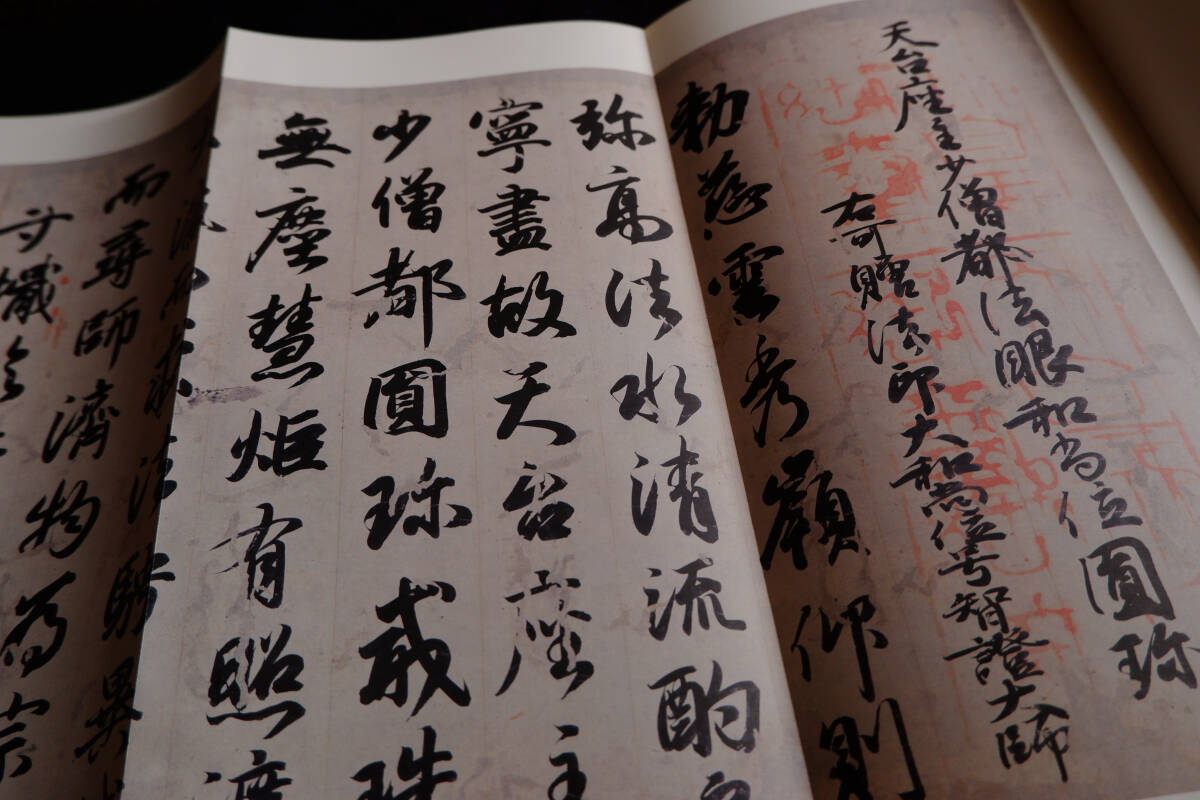 天台座主少僧都法眼和尚位圓珍
右可贈法印大和尚位号智證大師
勅慈雲秀嶺仰則
弥高法水清流酌
寧盡故天台座主
少僧都圓珍戒珠
無塵慧炬有照渡
而尋師濟物為宗